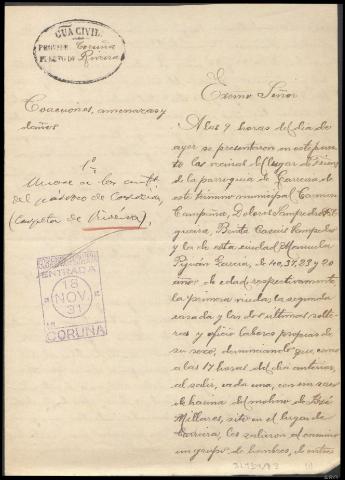 GUA CIVIL
PROVIN Coruña
PUESTO DE Riveira
Coacciones, amenazas y
daños
Únase a los
del de
(Carpeta de Riveira).
ENTRADA
18
NOV.
31
CORUÑA
Excmo Señor
A las 9 horas del dia de
ayer se presentaron en este pues-
to las vecinas del lugar de
de la parroquia de Carreira de
este termino municipal Carmen
Campaña, Dolores Sampedro
gueira, Benita Sampedro
y la de esta ciudad Manuela
Pijuán Garcia, de 40, 37, 23 y 20
años de edad respectivamente
la primera viuda, la segunda
casada y las dos ultimas solte-
ras y oficio labores propias de
su sexo, denunciando que, como
a las 17 horas del dia anterior,
al salir, cada una, con un saco
de harina del molino de José
Millares, sito en el lugar de
Carreira, les salieron al camino
un grupo de hombres, de entre